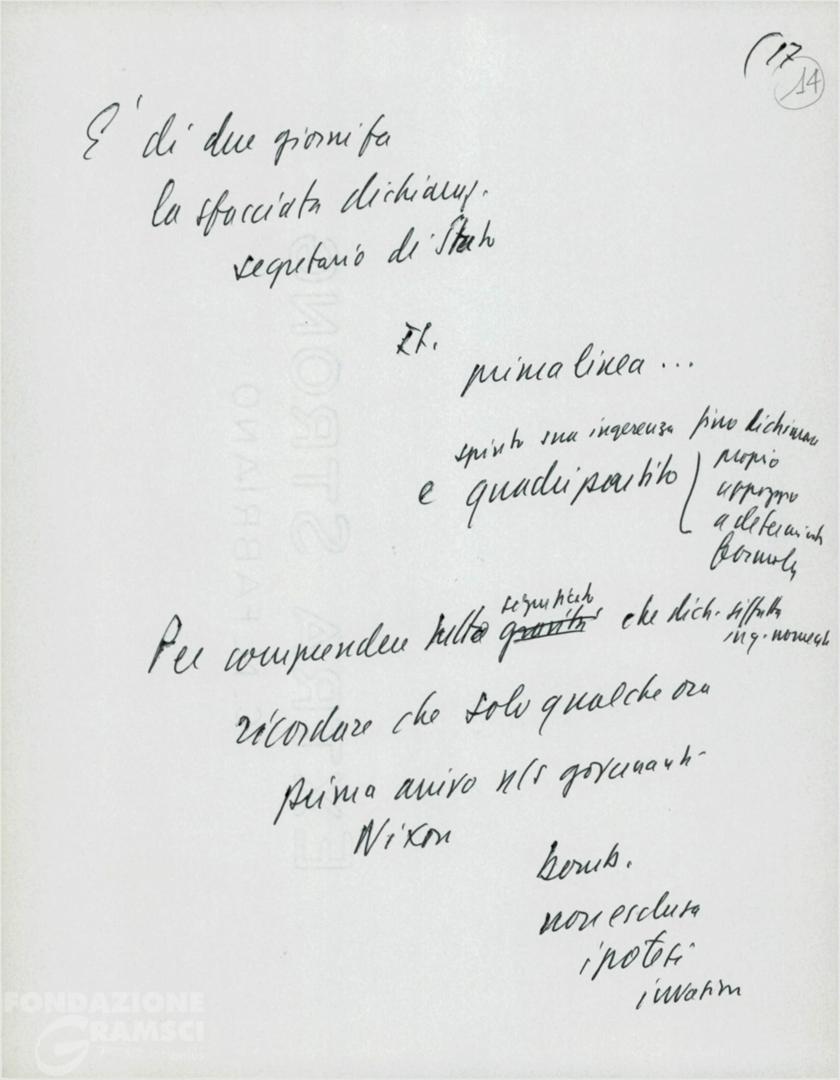 (17
14
E' di due giorni fa
la sfacciata dichiaraz.
segretario di Stato
It.
prima linea ...
spinto sua ingerenza fino dichiarare
e quadripartito
proprio
appoggio
a determinate
formule
significato
Per comprendere tutto gravità che dich. siffatta
ricordare che solo qualche ora
prima arrivo n/s governanti
Nixon
bomb.
non esclusa
ipotesi
invasion
EXTRA STRONG
FABRIANO
FONDAZIONE
GRAMSCI